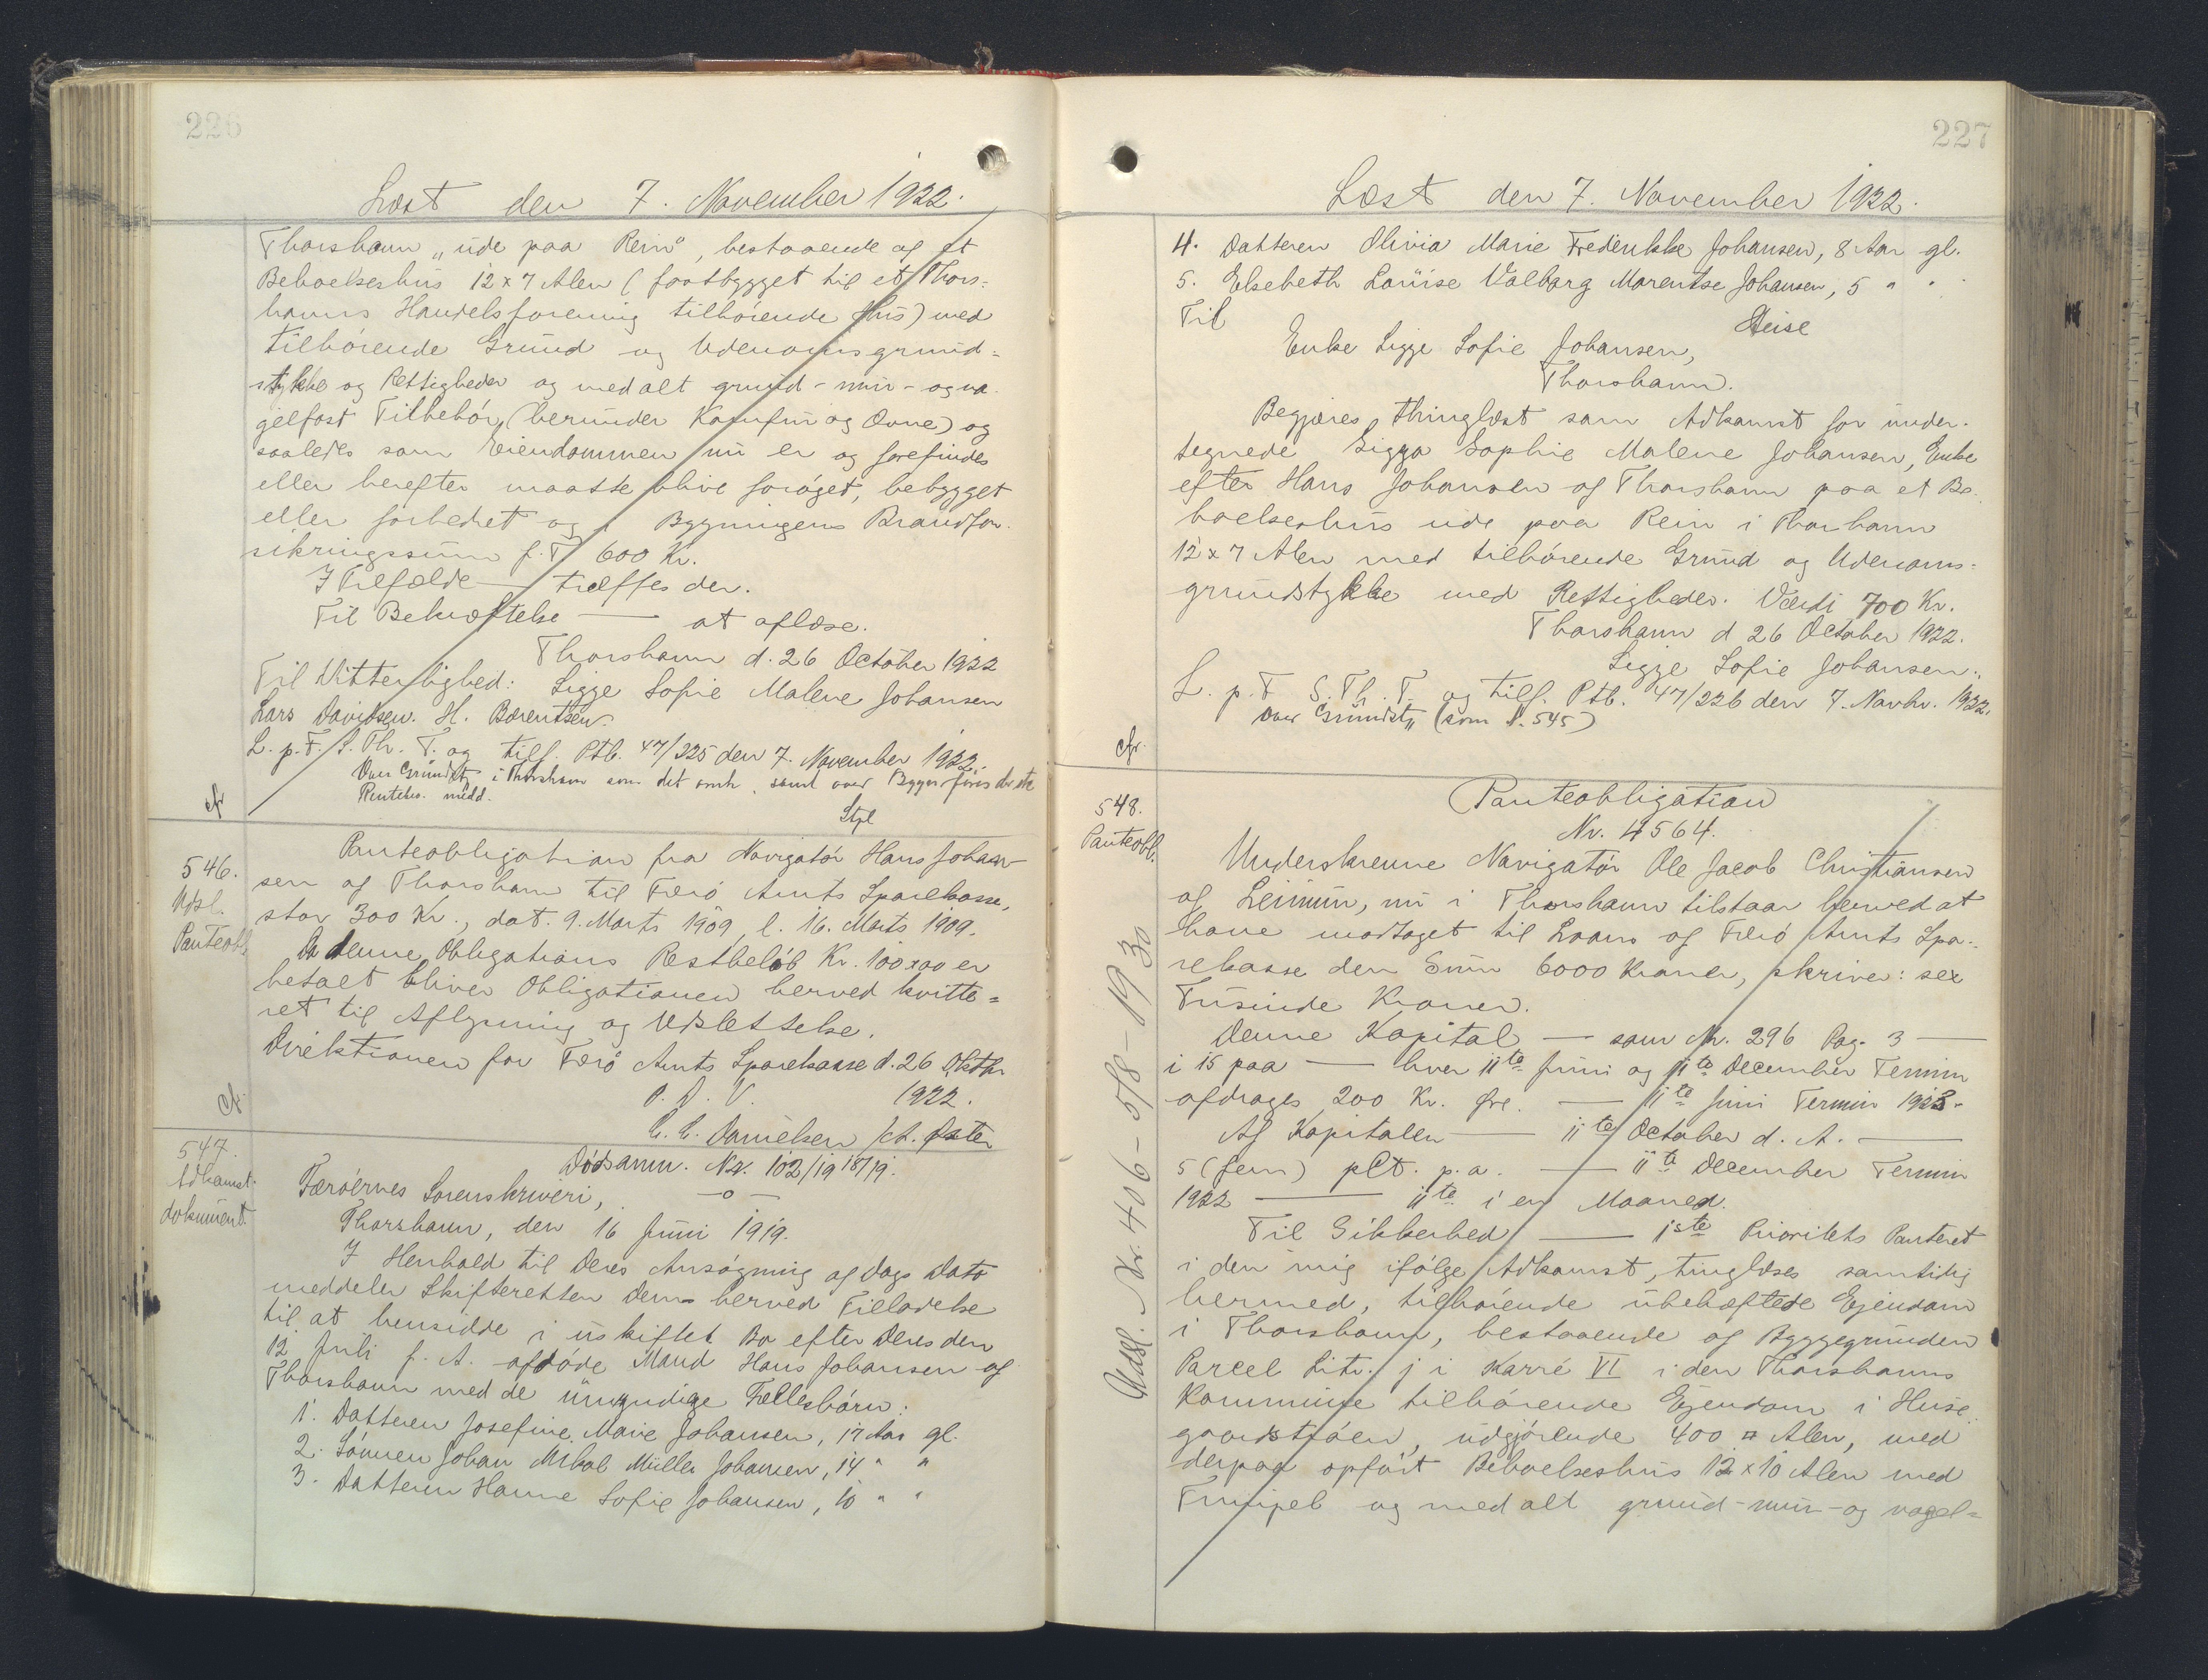 226
Læst den 7. November 1922.
Thorshavn "ude paa Rein", bestaaende af et
Beboelseshus 12 x 7 Alen (fastbygget til et Thors-
havns Handelsforening tilhørende Hus) med
tilhørende Grund og Udenomsgrund-
stykke og Rettigheder og med alt grund- mur- og na-
gelfast Tilbehør, (herunder Komfur og Ovne) og
saaledes som Eiendommen nu er og forefindes
eller herefter maatte blive forøget, bebygget
eller forbedret og i Bygningens Brandfor-
sikringssum f.T. 600 Kr.
I Tilfælde — træffes der.
Til Bekræftelse — at aflæse.
Thorshavn d. 26 October 1922
Til Vitterlighed: Sigge Sofie Malene Johansen
Lars Davidsen. H. Bærentsen.
L. p. F. S. Th. T. og tilf. Ptb. 47/225 den 7. November 1922.
Over Grundst, i Thorshavn som det omh, samt over Bygn
Rentebev. medd.
cfr
546.
Udsl.
Panteobl.
Panteobligation fra Navigatør Hans Johan-
sen af Thorshavn til Færø Amts Sparekasse,
stor 300 Kr., dat. 9. Marts 1909, l. 16. Marts 1909.
Da denne Obligations Restbeløb Kr. 100x00 er
betalt bliver Obligationen herved kvitte-
ret til Aflysning og Udslettelse.
Direktionen for Færø Amts Sparekasse d. 26 Oktbr
P. D. V. 1922.
C. C. Danielsen
cfr.
547.
Adkomst-
dokument.
Dødsanm. Nr. 102/19 18/19.
Færøernes Sorenskriveri, —o—
Thorshavn, den 16 Juni 1919.
I Henhold til Deres Ansøgning af Dags Dato
meddeler Skifteretten Dem herved Tilladelse
til at hensidde i uskiftet Bo efter Deres den
12 Juli f. A. afdøde Mand Hans Johansen af
Thorshavn med de umyndige Fællesbørn:
1. Datteren Josefine Marie Johansen, 17 Aar gl.
2. Sønnen Johan Mikal Müller Johansen, 14 " "
3. Datteren Hanne Sofie Johansen, 10 " "
227
Læst den 7. November 1922.
4. Datteren Olivia Marie Frederikke Johansen, 8 Aar gl.
5. Elsebeth Louise Valborg Marentse Johansen, 5 " "
Til Heise
Enke Sigge Sofie Johansen,
Thorshavn.
Begjæres thinglæst som Adkomst for under-
tegnede Sigga Sophie Malene Johansen, Enke
efter Hans Johansen af Thorshavn paa et Be-
boelseshus ude paa Rein i Thorshavn
12 x 7 Alen med tilhørende Grund og Udenoms-
grundstykke med Rettigheder. Værdi 700 Kr.
Thorshavn d 26 October 1922.
Sigge Sofie Johansen.
L. p. F S. Th. T. og tilf. Ptb. 47/226 den 7. Novbr. 1922.
Over Grundst, (som S. 545)
cfr.
548.
Panteobl.
Udsl. Nr. 406 - 5/8 - 1930
Panteobligation
Nr. 4564.
Underskrevne Navigatør Ole Jacob Christiansen
af Leimum, nu i Thorshavn tilstaar herved at
have modtaget til Laans af Færø Amts Spa-
rekasse den Sum 6000 Kroner, skriver: sex
Tusinde Kroner.
Denne Kapital — som Nr. 296 Pag. 3 —
i 15 paa — hver 11te Juni og 11te December Termin
afdrages 200 Kr. — 11te Juni Termin 1923.
Af Kapitalen — 11te October d. A. —
5 (fem) pCt. p. a. — 11te December Termin
1922 — 11te i en Maaned.
Til Sikkerhed — 1ste Prioritets Panteret
i den mig ifølge Adkomst, tinglæses samtidig
hermed, tilhørende ubehæftede Ejendom
i Thorshavn, bestaaende af Byggegrunden
Parcel Litr. j i Karré VI i den Thorshavns
Kommune tilhørende Ejendom i Huse-
gaardstrøen, udgjørende 400 □ Alen, med
derpaa opført Beboelseshus 12 x 10 Alen med
og med alt grund- mur- og nagel-